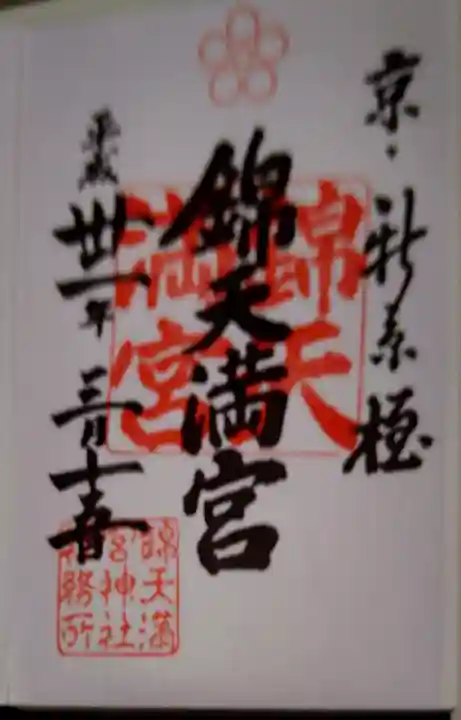 京・新京極
錦天満宮
錦天満宮
平成卅一年三月十
錦天満
宮神社
社務所